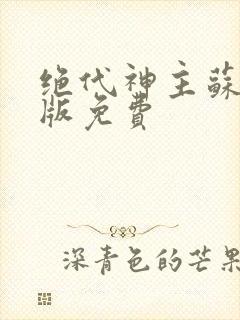 绝代神主蘇
版免費
深青色的芒果